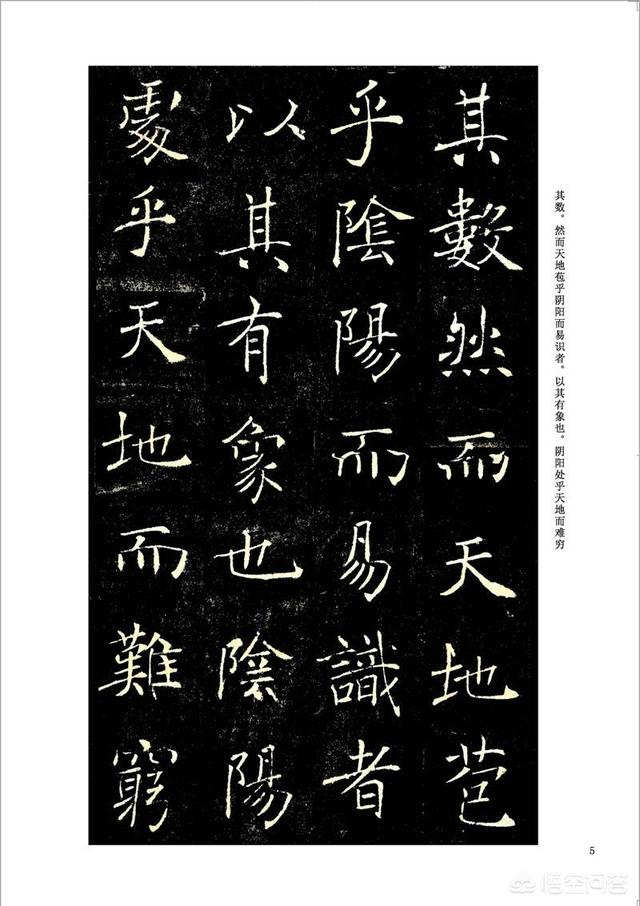 其數然而天地苞
乎陰陽而易識者
以其有象也陰陽
處乎天地而難窮
其数。然而天地苞乎阴阳而易识者。以其有象也。阴阳处乎天地而难穷
5
悟空问答